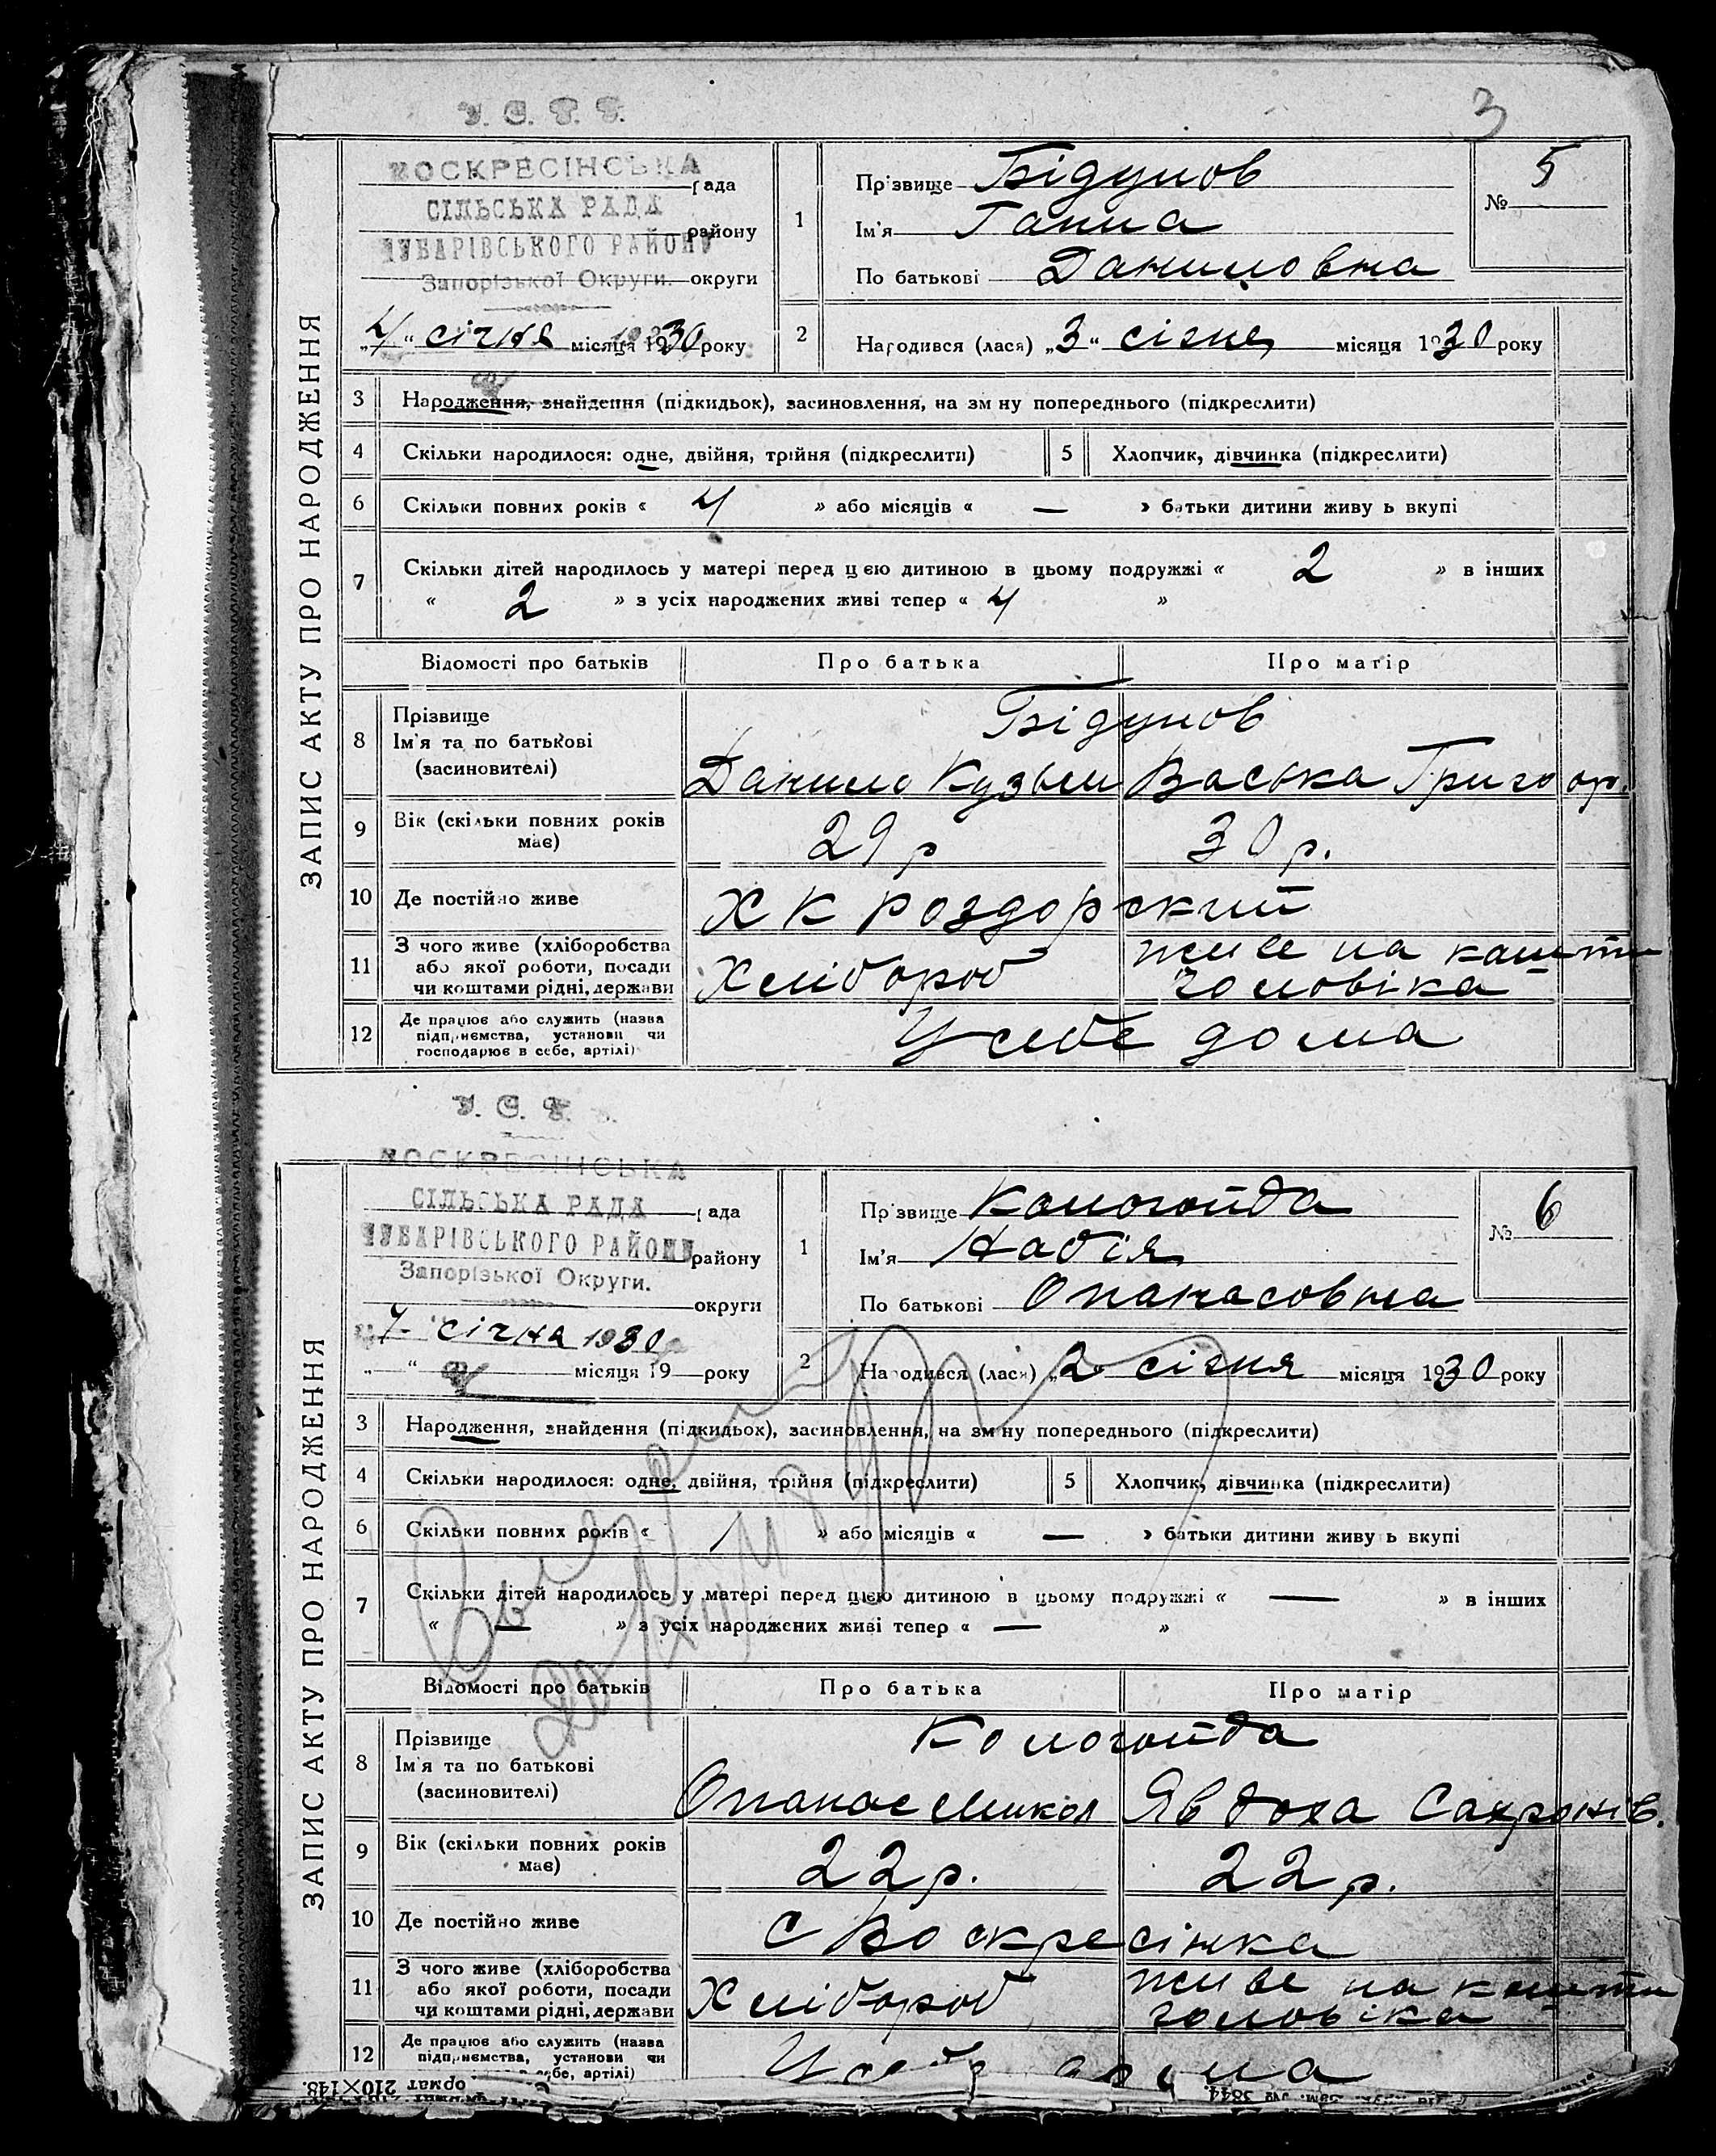 3
У. С. Р. Р.
ВОСКРЕСІНСЬКА
СІЛЬСЬКА РАДА рада
ЧУБАРІВСЬКОГО РАЙОНУ району
Запорізької Округи. округи
„4“ січня місяця 1930 року
1
Прізвище Бідунов
Ім'я Ганна
По батькові Даниловна
№ 5
2
Народився (лася) „3“ січня місяця 1930 року
ЗАПИС АКТУ ПРО НАРОДЖЕННЯ
3 Народження, знайдення (підкидьок), засиновлення, на зміну попереднього (підкреслити)
4 Скільки народилося: одне, двійня, трійня (підкреслити)
5 Хлопчик, дівчинка (підкреслити)
6 Скільки повних років « 4 » або місяців « — » батьки дитини живуть вкупі
7 Скільки дітей народилось у матері перед цією дитиною в цьому подружжі « 2 » в інших
« 2 » з усіх народжених живі тепер « 4 »
Відомості про батьків Про батька Про матір
8 Прізвище
Ім'я та по батькові
(засиновителі)
Бідунов
Данило Кузьм Васька Григор.
9 Вік (скільки повних років
має)
29 р 30 р.
10 Де постійно живе
Х К Роздорский
11 З чого живе (хліборобства
або якої роботи, посади
чи коштами рідні, держави
Хлібороб
живе на кошти
чоловіка
12 Де працює або служить (назва
підприємства, установи чи
господарює в себе, артілі)
У себе дома
У. С. Р.
ВОСКРЕСІНСЬКА
СІЛЬСЬКА РАДА рада
ЧУБАРІВСЬКОГО РАЙОНУ району
Запорізької Округи.
округи
7 січня 1930
„ “ місяця 19 року
1
Прізвище Кологойда
Ім'я Надія
По батькові Опанасовна
№ 6
2
Народився (лася) „2“ січня місяця 1930 року
ЗАПИС АКТУ ПРО НАРОДЖЕННЯ
3 Народження, знайдення (підкидьок), засиновлення, на зміну попереднього (підкреслити)
4 Скільки народилося: одне, двійня, трійня (підкреслити)
5 Хлопчик, дівчинка (підкреслити)
6 Скільки повних років « 1 » або місяців « — » батьки дитини живуть вкупі
7 Скільки дітей народилось у матері перед цією дитиною в цьому подружжі « — » в інших
« — » з усіх народжених живі тепер « — »
Відомості про батьків Про батька Про матір
8 Прізвище
Ім'я та по батькові
(засиновителі)
Кологойда
Опанас Микол Явдоха Сахронів.
9 Вік (скільки повних років
має)
22 р. 22 р.
10 Де постійно живе
С Воскресінка
11 З чого живе (хліборобства
або якої роботи, посади
чи коштами рідні, держави
Хлібороб
живе на кошти
чоловіка
12 Де працює або служить (назва
підприємства, установи чи
себе, артілі)
У себе дома
формат 210×148.
3844.